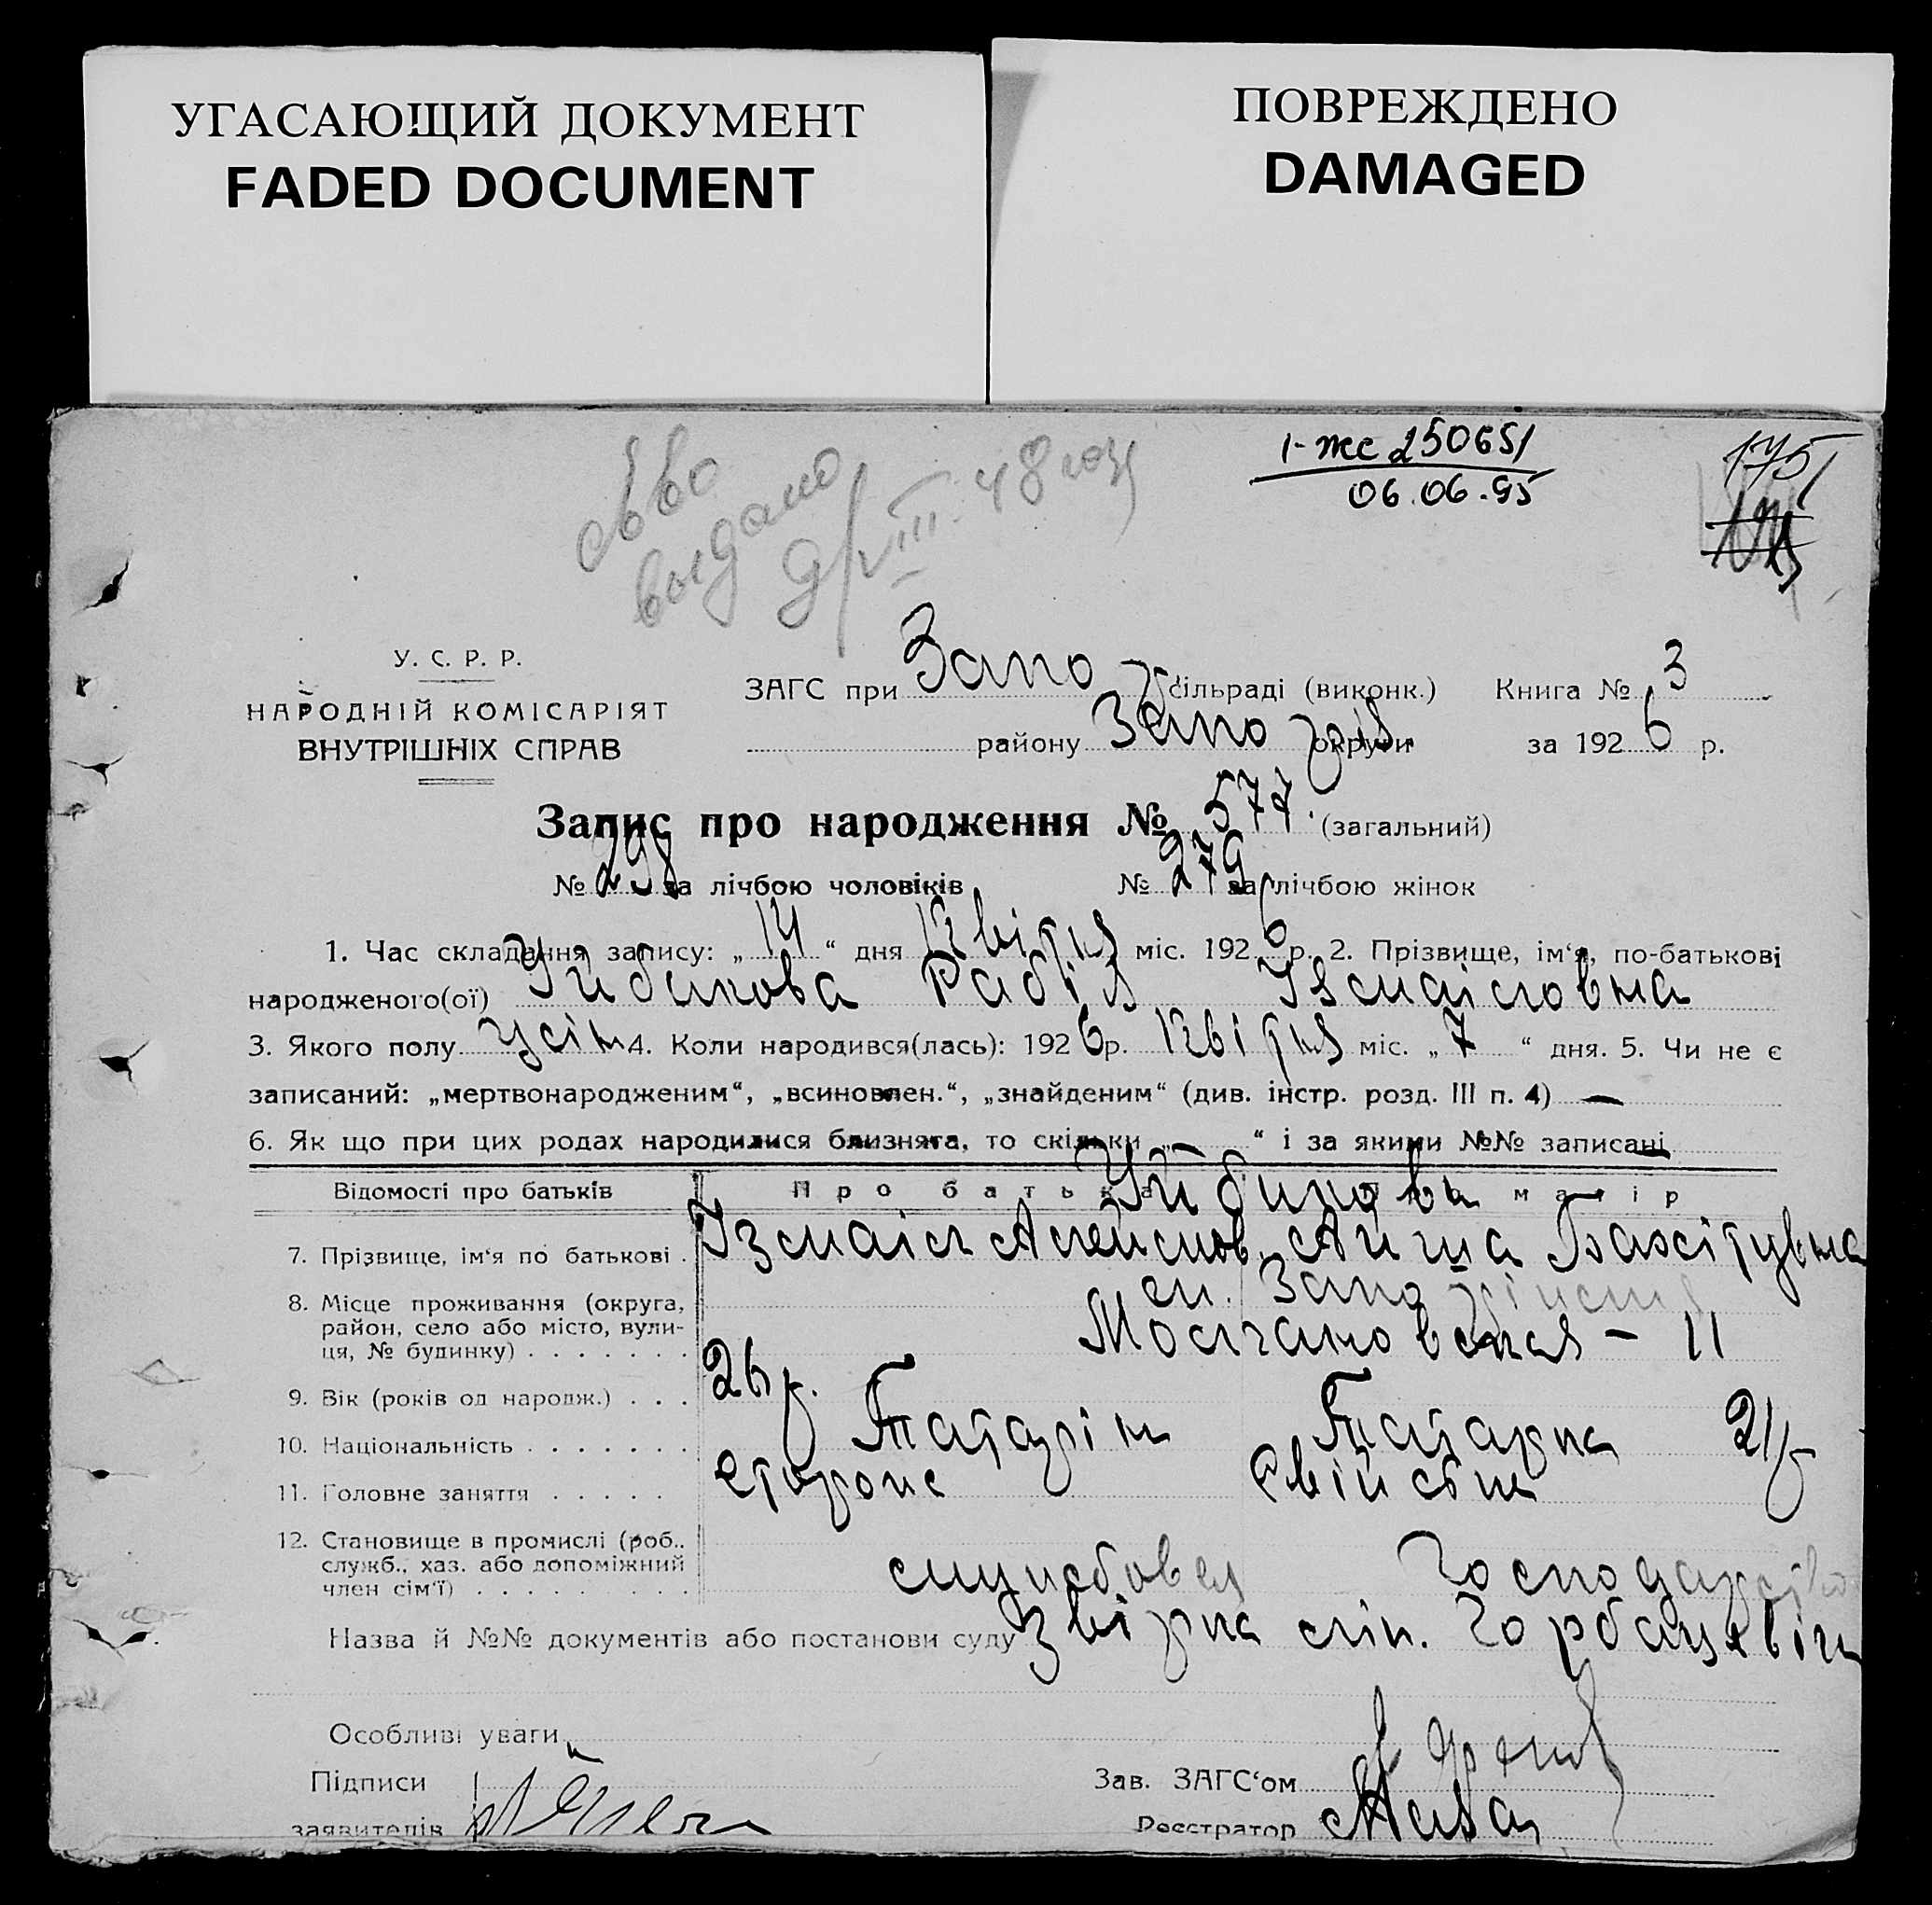 УГАСАЮЩИЙ ДОКУМЕНТ
FADED DOCUMENT
ПОВРЕЖДЕНО
DAMAGED
I-жс 250651
06.06.95
175
выдано
III 48
У. С. Р. Р.
НАРОДНІЙ КОМІСАРІЯТ
ВНУТРІШНІХ СПРАВ
ЗАГС при Запо сільраді (виконк.) Книга № 3
району Запо округи за 1926 р.
Запис про народження № 577. (загальний)
№ 298 за лічбою чоловіків № 279 за лічбою жінок
1. Час складання запису: „14“ дня квітня міс. 1926 р. 2. Прізвище, ім‘я, по-батькові
народженого(ої) Рабія
3. Якого полу жін 4. Коли народився(лась): 1926 р. квітня міс. „7“ дня. 5. Чи не є
записаний: „мертвонародженим“, „всиновлен.“, „знайденим“ (див. інстр. розд. III п. 4) —
6. Як що при цих родах народилися близнята, то скільки „—“ і за якими №№ записані —
Відомості про батьків Про батька Про матір
7. Прізвище, ім‘я по батькові . Ізмаіл
8. Місце проживання (округа,
район, село або місто, вули-
ця, № будинку) . . . . . . . Молчановская – 11
9. Вік (років од народж.) . . . 26 р. 21 р
10. Національність . . . . . . . Татарін Татарка
11. Головне заняття . . . . .
12. Становище в промислі (роб..
служб., хаз. або допоміжний
член сім‘ї) . . . . . . . . . службовец Господарство
Назва й №№ документів або постанови суду Звірка
Особливі уваги
Підписи
заявителів
Зав. ЗАГС‘ом
Реєстратор